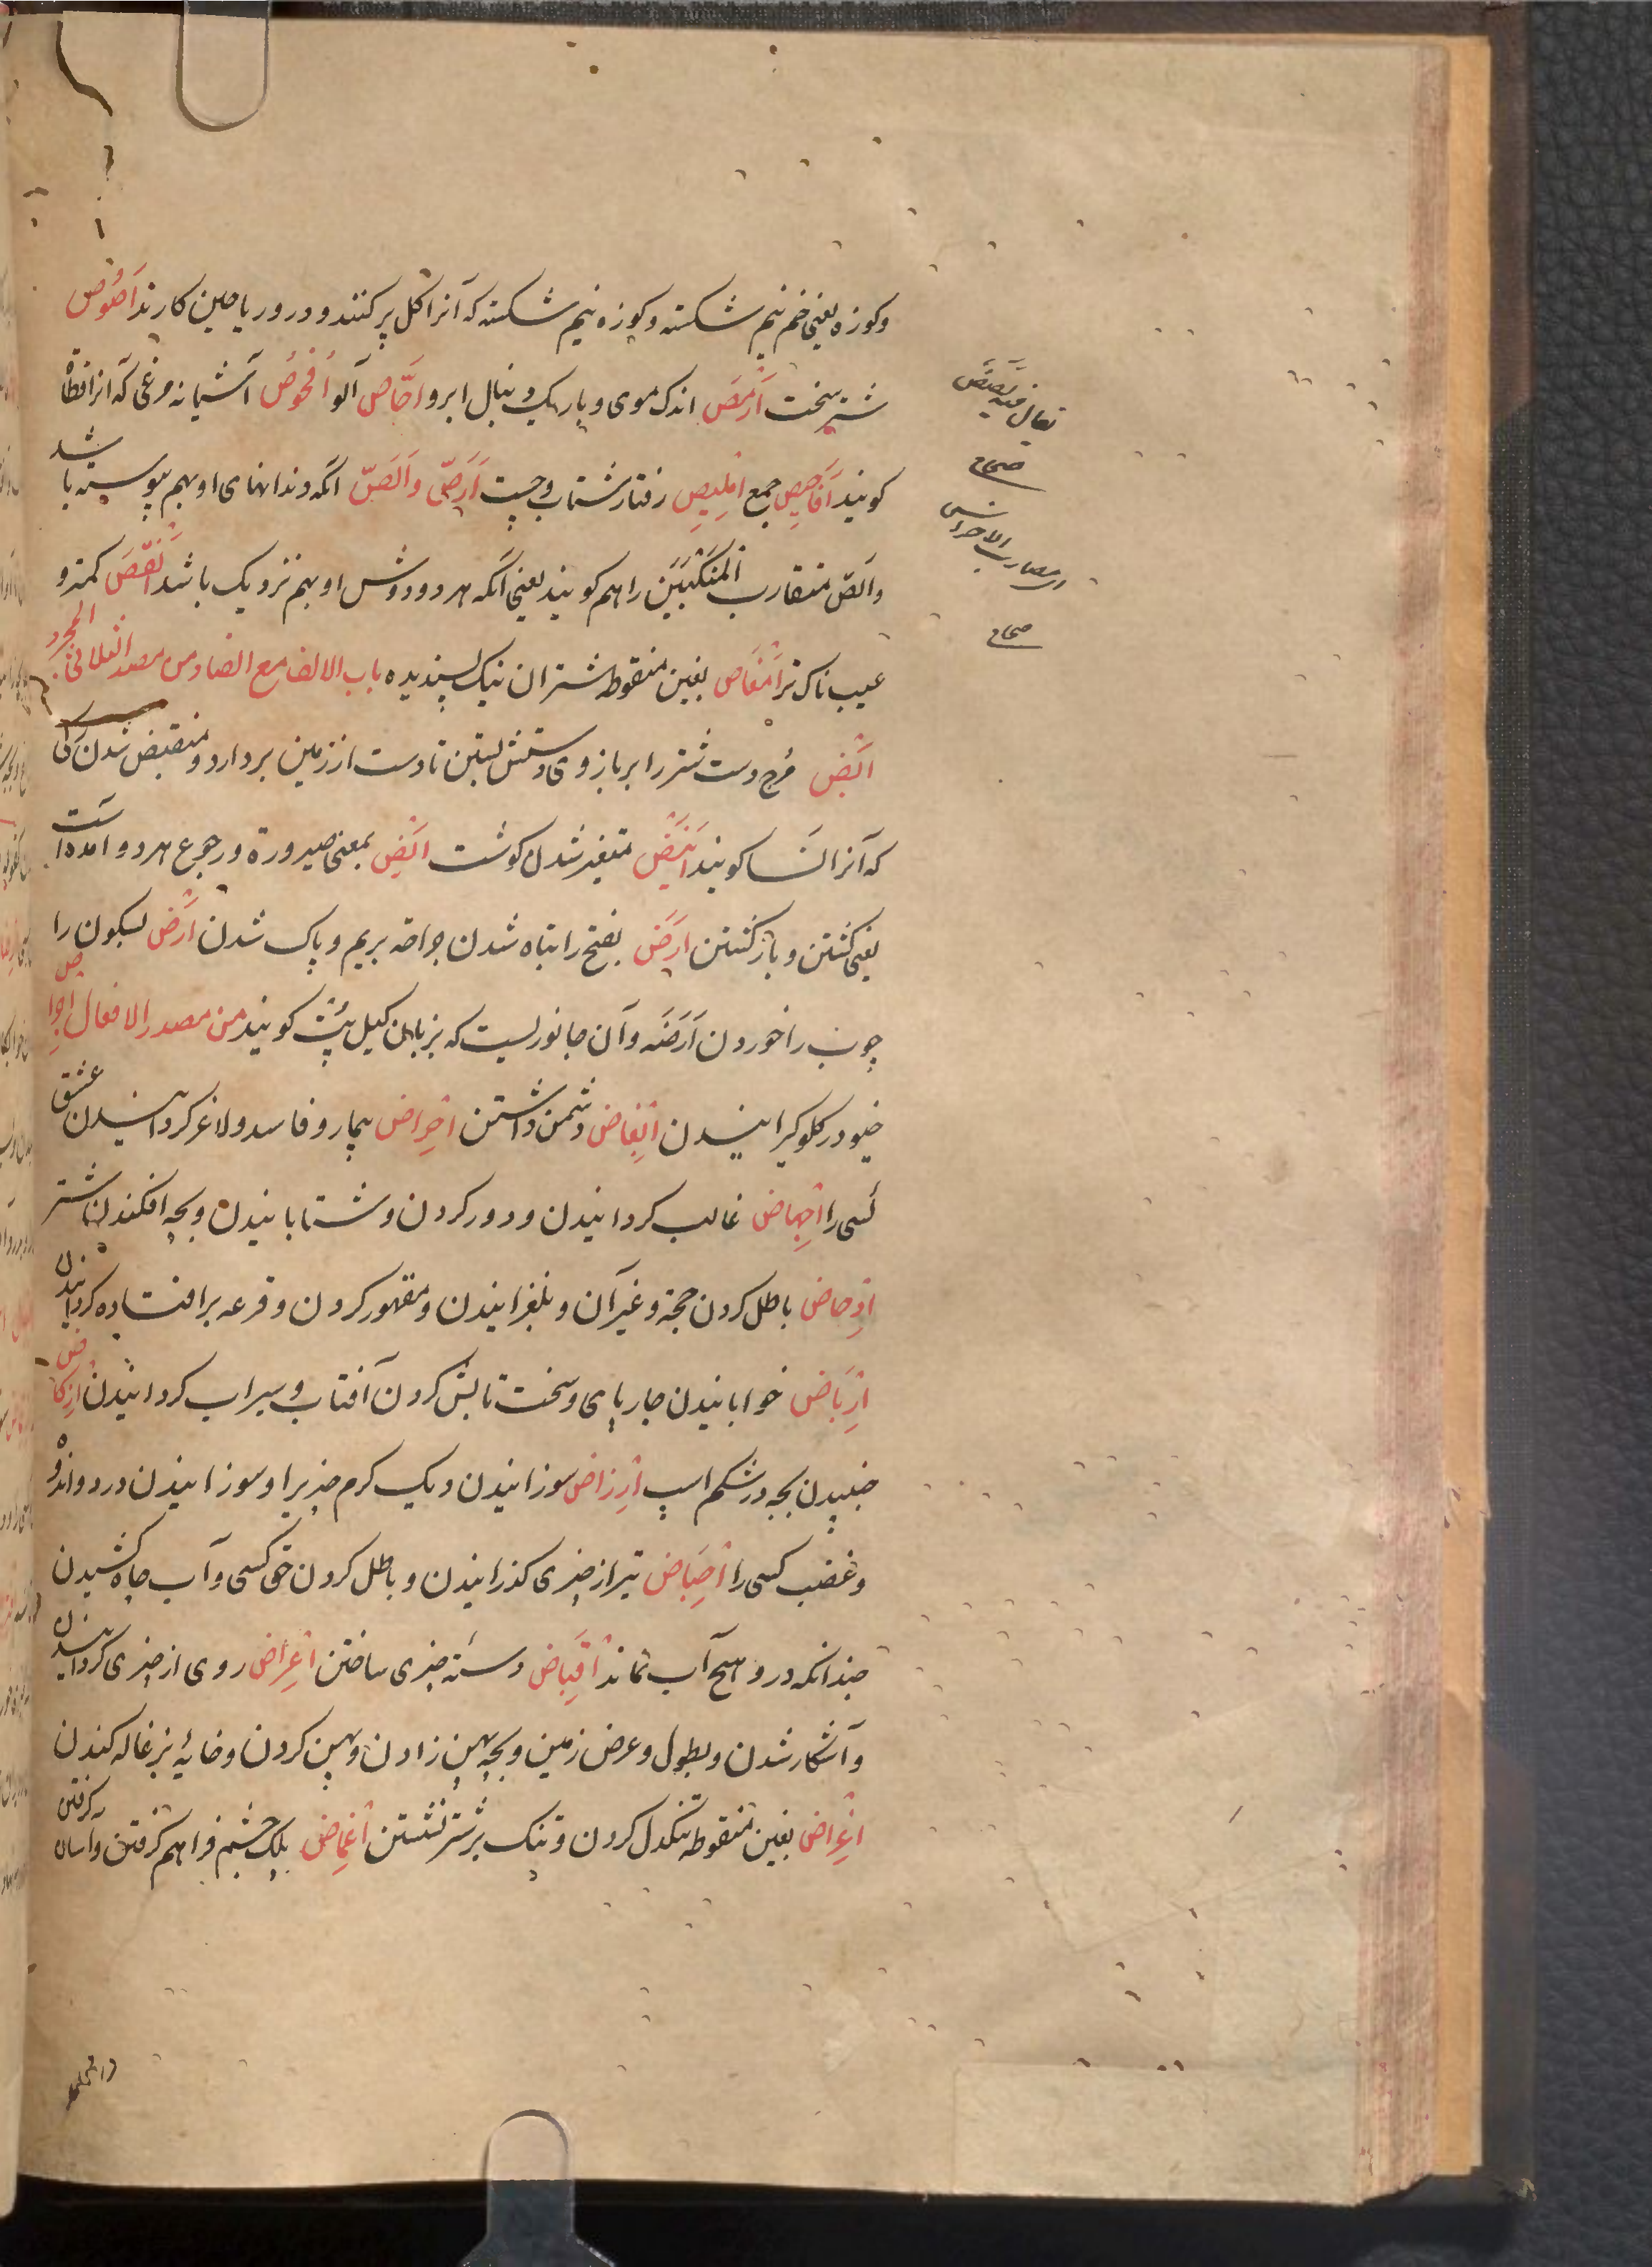 و کوزه یعنی خم نیم شکسته و کوزه نیم شکسته که آنرا کل پر کنند و درو ریاحین کارند اَصُوص
شتر سخت اَرْمَصَ اندک موی و باریک دنبال ابرو اجّاص آلو اُفْحُوُص آشیانه مرغی که انرا قطاة
کویند اَفَاحِیِص جمع اِمْلِیِص رفتار شتاب و جست اَرَصّ و اَلَصّ آنکه دندانهای او بهم پیوسته باشد
و اَلَصّ متقارب المَنْکَبَیْن را هم کویند یعنی آنکه هر دو دوش او بهم نزدیک باشد اَنْقَصَ کمتر و
عیب ناک تر اَمْغَاص بغین منقوطه شتران نیک پسندیده باب الالف مع الضاد من مصدر الثلاثی المجرد
اَبْض مُرج دست شتر را بر بازوی دستش بستن تا دست از زمین بردارد و منقبض شدن رکی
که آنرا نَسا کویند اَنَیْضَ متغیر شدن کوشت اَیْض بمعنی صیرورة و رجوع هر دو آمده است
یعنی کشتن و باز کشتن اَرَض بفتح را تباه شدن جراحه بریم و پاک شدن اَرْض بسکون را
چوب را خوردن اَرَضَه و آن جانوریست که بزبان کیل بُپت کویند من مصدر الافعال اِجْراض
خیو در کلو کیرانیدن اِبْغاض دشمن داشتن اِحْراض بیمار و فاسد و لاغر کردانیدن عشق
کسی را اِجْهاض غالب کردانیدن و دور کردن و شتابانیدن و بچه افکندن ناشتر
اِدْحاض باطل کردن حجة و غیر آن و بلغزانیدن و مقهور کردن و قرعه بر افتاده کردانیدن
اِرْبَاض خوابانیدن چارپای و سخت تابش کردن آفتاب و سیراب کردانیدن اِرْکاض
جنبیدن بچه در شکم اسپ اِرْماض سوزانیدن و یک کرم چیزیرا و سوزانیدن درد و اندوه
و غضب کسی را اِحْبَاض تیر از چیزی کذرانیدن و باطل کردن حق کسی و آب چاه کشیدن
چندانکه درو هیچ آب نماند اِقْبَاض دسته چیزی ساختن اِعْراض روی از چیزی کردانیدن
و آشکار شدن و بطول و عرض زمین و بچه پهن زادن و پهن کردن و خایهٔ بزغاله کندن
اِغْراض بغین منقوطه تنکدل کردن و تنک بر شتر نشستن اِغْماض پلک چشم فراهم گرفتن و آسان گرفتن
یقال فیه لَصَصَّ
صحاح
صحاح